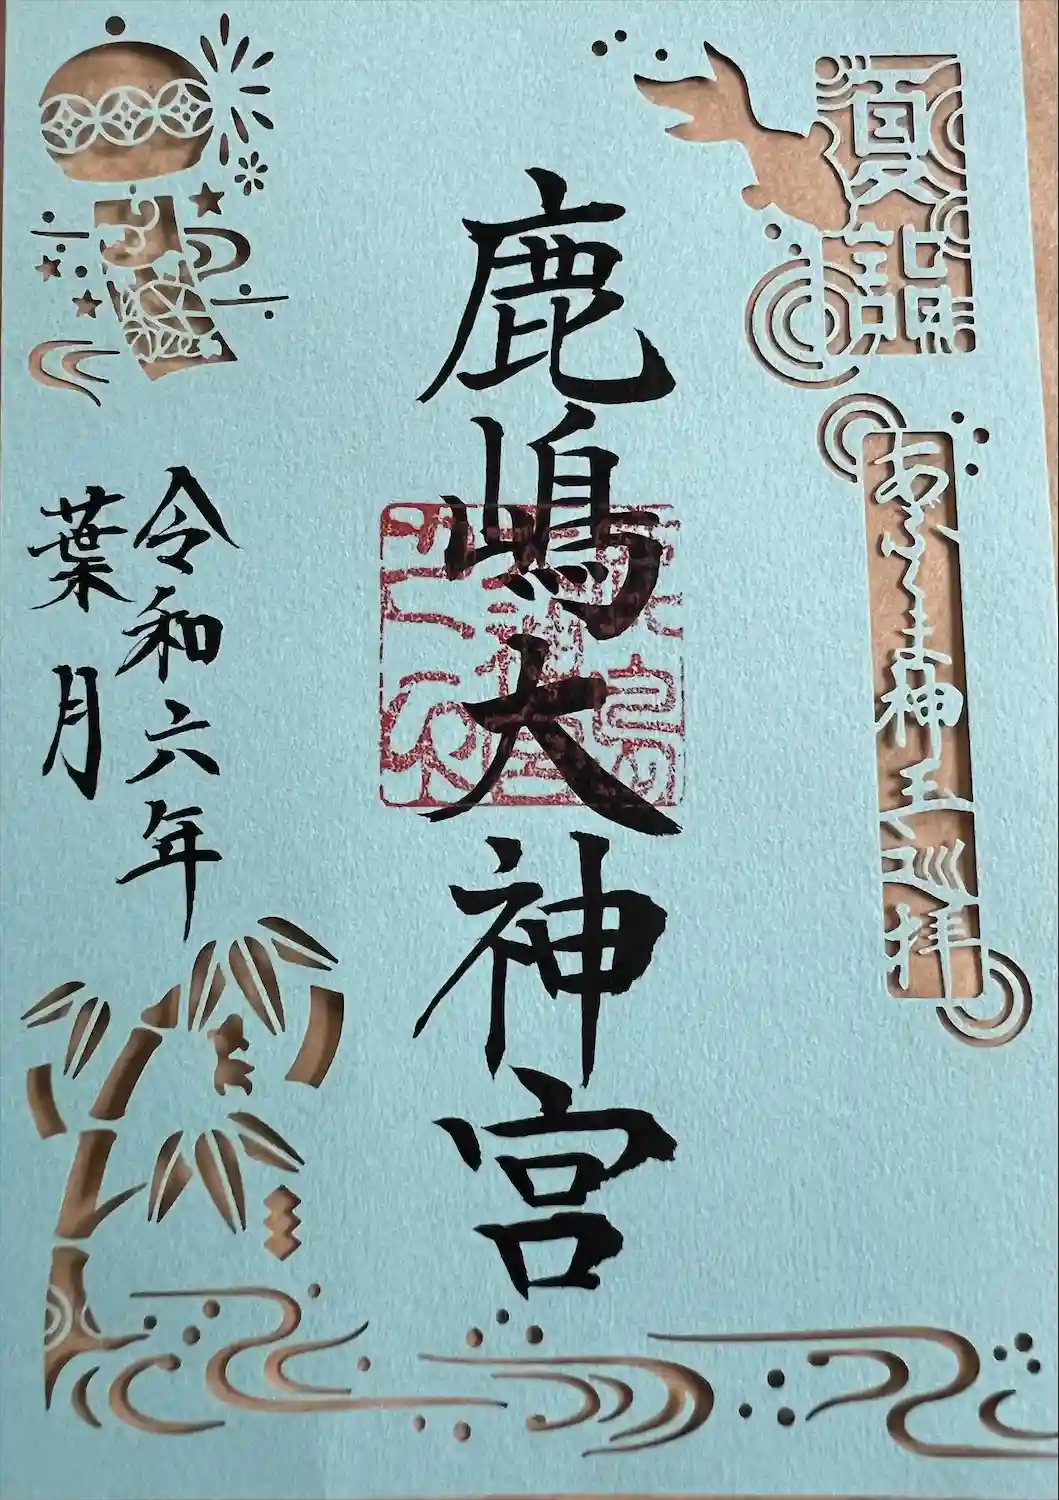 夏詣
あぶくま神玉巡拝
鹿嶋大神宮
令和六年
葉月